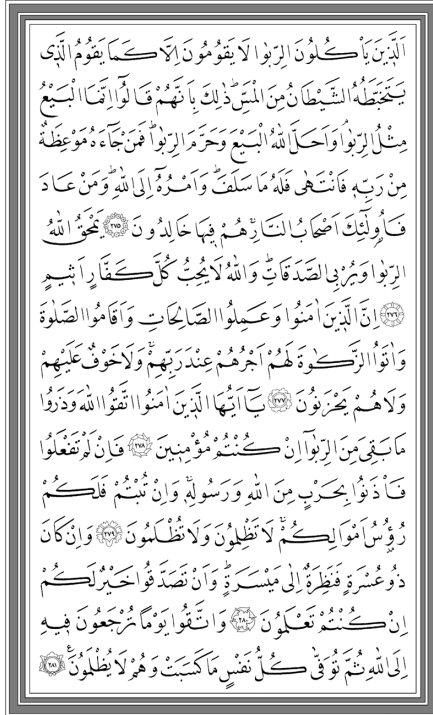 اَلَّذٖينَ يَأْكُلُونَ الرِّبٰوا لَا يَقُومُونَ اِلَّا كَمَا يَقُومُ الَّذٖى
يَتَخَبَّطُهُ الشَّيْطَانُ مِنَ الْمَسِّؕ ذٰلِكَ بِاَنَّهُمْ قَالُٓوا اِنَّمَا الْبَيْعُ
مِثْلُ الرِّبٰواۘ وَاَحَلَّ اللّٰهُ الْبَيْعَ وَحَرَّمَ الرِّبٰواؕ فَمَنْ جَٓاءَهُ مَوْعِظَةٌ
مِنْ رَبِّهٖ فَانْتَهٰى فَلَهُ مَا سَلَفَؕ وَاَمْرُهُٓ اِلَى اللّٰهِؕ وَمَنْ عَادَ
فَاُولٰٓئِكَ اَصْحَابُ النَّارِۚ هُمْ فٖيهَا خَالِدُونَ ﴿٢٧٥﴾ يَمْحَقُ اللّٰهُ
الرِّبٰوا وَيُرْبِى الصَّدَقَاتِؕ وَاللّٰهُ لَا يُحِبُّ كُلَّ كَفَّارٍ اَثٖيمٍ
﴿٢٧٦﴾ اِنَّ الَّذٖينَ اٰمَنُوا وَعَمِلُوا الصَّالِحَاتِ وَاَقَامُوا الصَّلٰوةَ
وَاٰتَوُا الزَّكٰوةَ لَهُمْ اَجْرُهُمْ عِنْدَ رَبِّهِمْۚ وَلَا خَوْفٌ عَلَيْهِمْ
وَلَا هُمْ يَحْزَنُونَ ﴿٢٧٧﴾ يَٓا اَيُّهَا الَّذٖينَ اٰمَنُوا اتَّقُوا اللّٰهَ وَذَرُوا
مَا بَقِىَ مِنَ الرِّبٰٓوا اِنْ كُنْتُمْ مُؤْمِنٖينَ ﴿٢٧٨﴾ فَاِنْ لَمْ تَفْعَلُوا
فَأْذَنُوا بِحَرْبٍ مِنَ اللّٰهِ وَرَسُولِهٖۚ وَاِنْ تُبْتُمْ فَلَكُمْ
رُؤُ۫سُ اَمْوَالِكُمْۚ لَا تَظْلِمُونَ وَلَا تُظْلَمُونَ ﴿٢٧٩﴾ وَاِنْ كَانَ
ذُو عُسْرَةٍ فَنَظِرَةٌ اِلٰى مَيْسَرَةٍؕ وَاَنْ تَصَدَّقُوا خَيْرٌ لَكُمْ
اِنْ كُنْتُمْ تَعْلَمُونَ ﴿٢٨٠﴾ وَاتَّقُوا يَوْمًا تُرْجَعُونَ فٖيهِ
اِلَى اللّٰهِ ثُمَّ تُوَفّٰى كُلُّ نَفْسٍ مَا كَسَبَتْ وَهُمْ لَا يُظْلَمُونَ ﴿٢٨١﴾